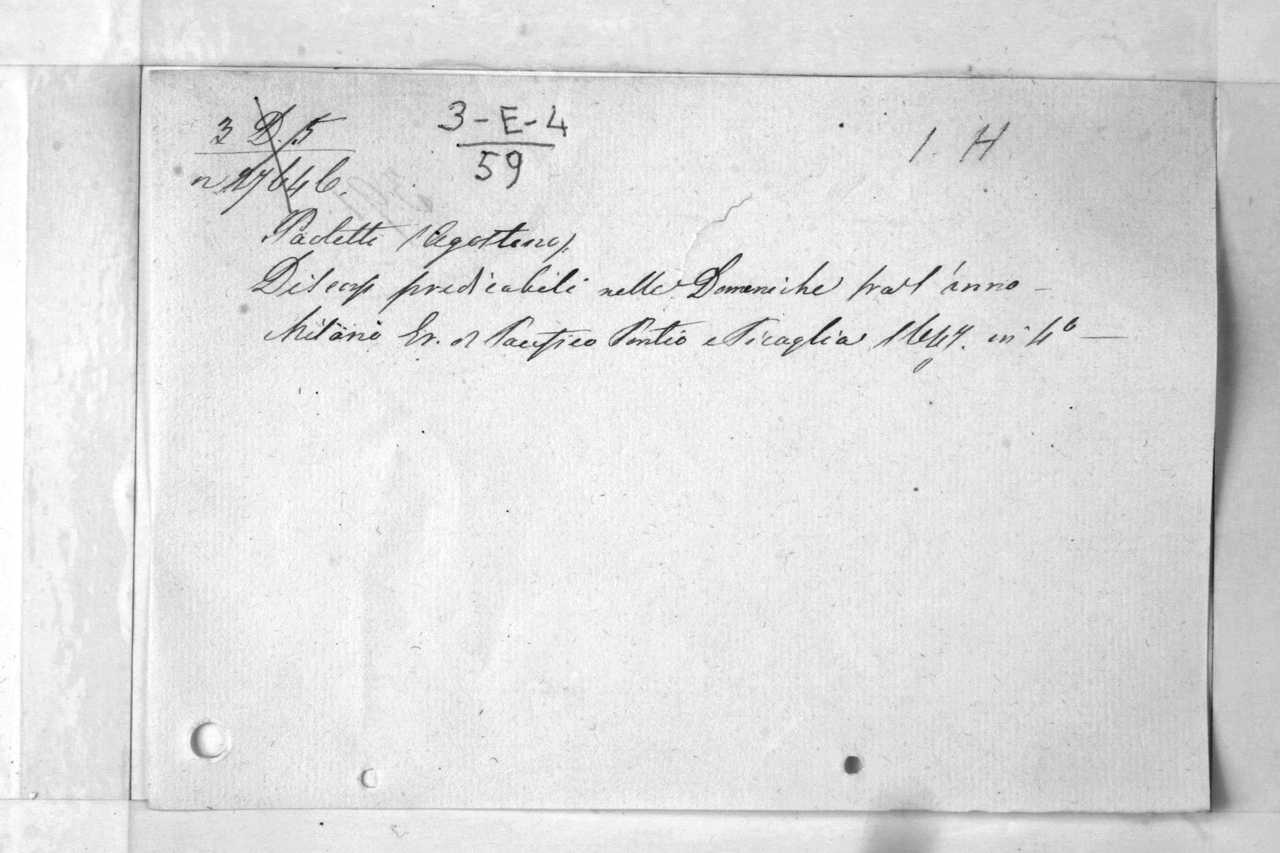 3 D. 5 3-E-4 1. H
n 17646. 59
Paoletti (Agostino)
Discorsi predicabili nelle Domeniche fra l'anno —
Milano Er. di Pacifico Pontio e Picaglia 1647. in 4° —